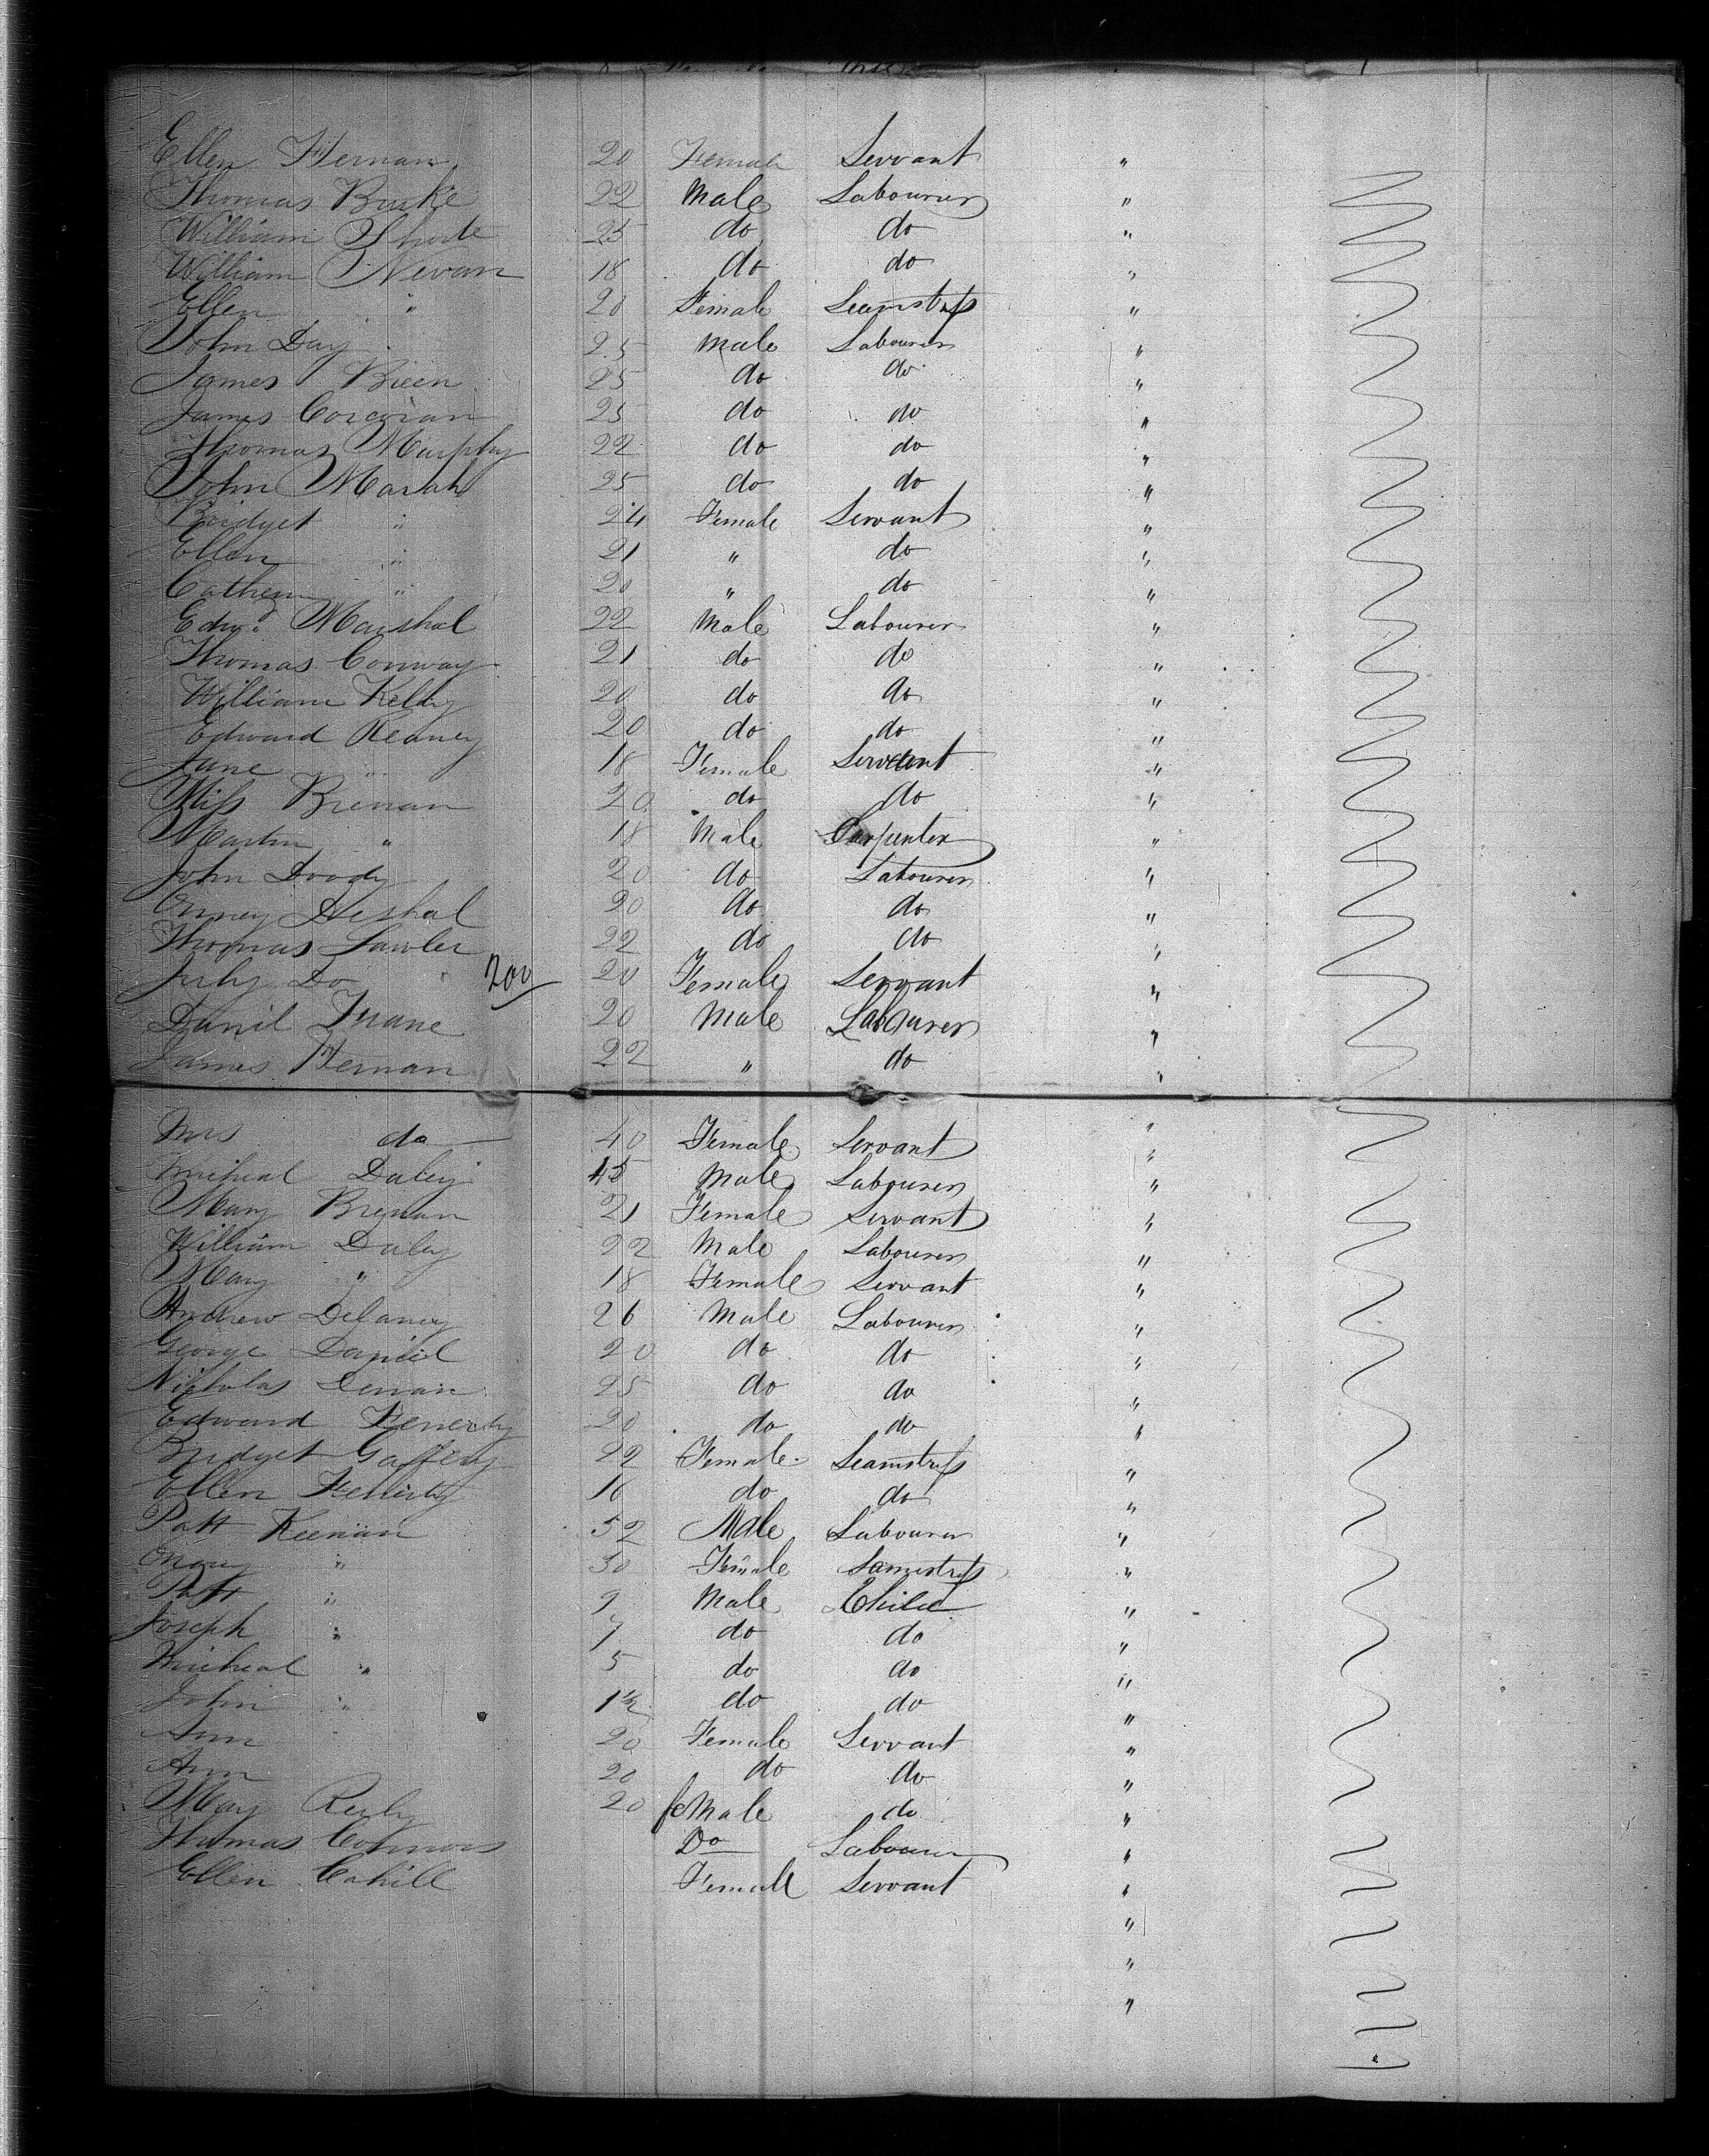 Ellen Hernan 20 Female Servant "
Thomas Burke 22 Male Labourer "
William Shorte 25 do do "
William Nevan 18 do do "
Ellen " 20 Female Seamstress "
John Day 25 Male Labourer "
James Breen 25 do do "
James Corcoran 25 do do "
Thomas Murphy 22 do do "
John Marah 25 do do "
Bridget " 24 Female Servant "
Ellen " 21 " do "
Cathern " 20 " do "
Edwd Marshal 22 Male Labourer "
Thomas Conway 21 do do "
William Kelly 20 do do "
Edward Keaney 20 do do "
Jane " 18 Female Servant "
Miss Brenan 20 do do "
Martin " 18 Male Carpenter "
John Doody 20 do Labourer "
20 do do "
Thomas Lawler 22 do do "
July Do 200 20 Female Servant "
Danil 20 Male Labourer "
James Hernan 22 " do "
Mrs do 40 Female Servant "
Micheal Daley 45 Male Labourer "
Mary Brenan 21 Female Servant "
William Daley 22 Male Labourer "
Mary " 18 Female Servant "
Andrew Delaney 26 Male Labourer "
George Daniel 20 do do "
Nicholas 25 do do "
Edward Fenerty 20 do do "
Bridget Gaffeny 22 Female Seamstress "
Ellen 16 do do "
Patt Keenan 52 Male Labourer "
Mary " 30 Female Samestress "
Patt " 9 Male Child "
Joseph " 7 do do "
Micheal " 5 do do "
John " 1½ do do "
Ann 20 Female Servant "
Ann 20 do do "
Mary Reily 20 feMale do "
Thomas Connors Do Labourer "
Ellen Cahill Female Servant "
"
"
"